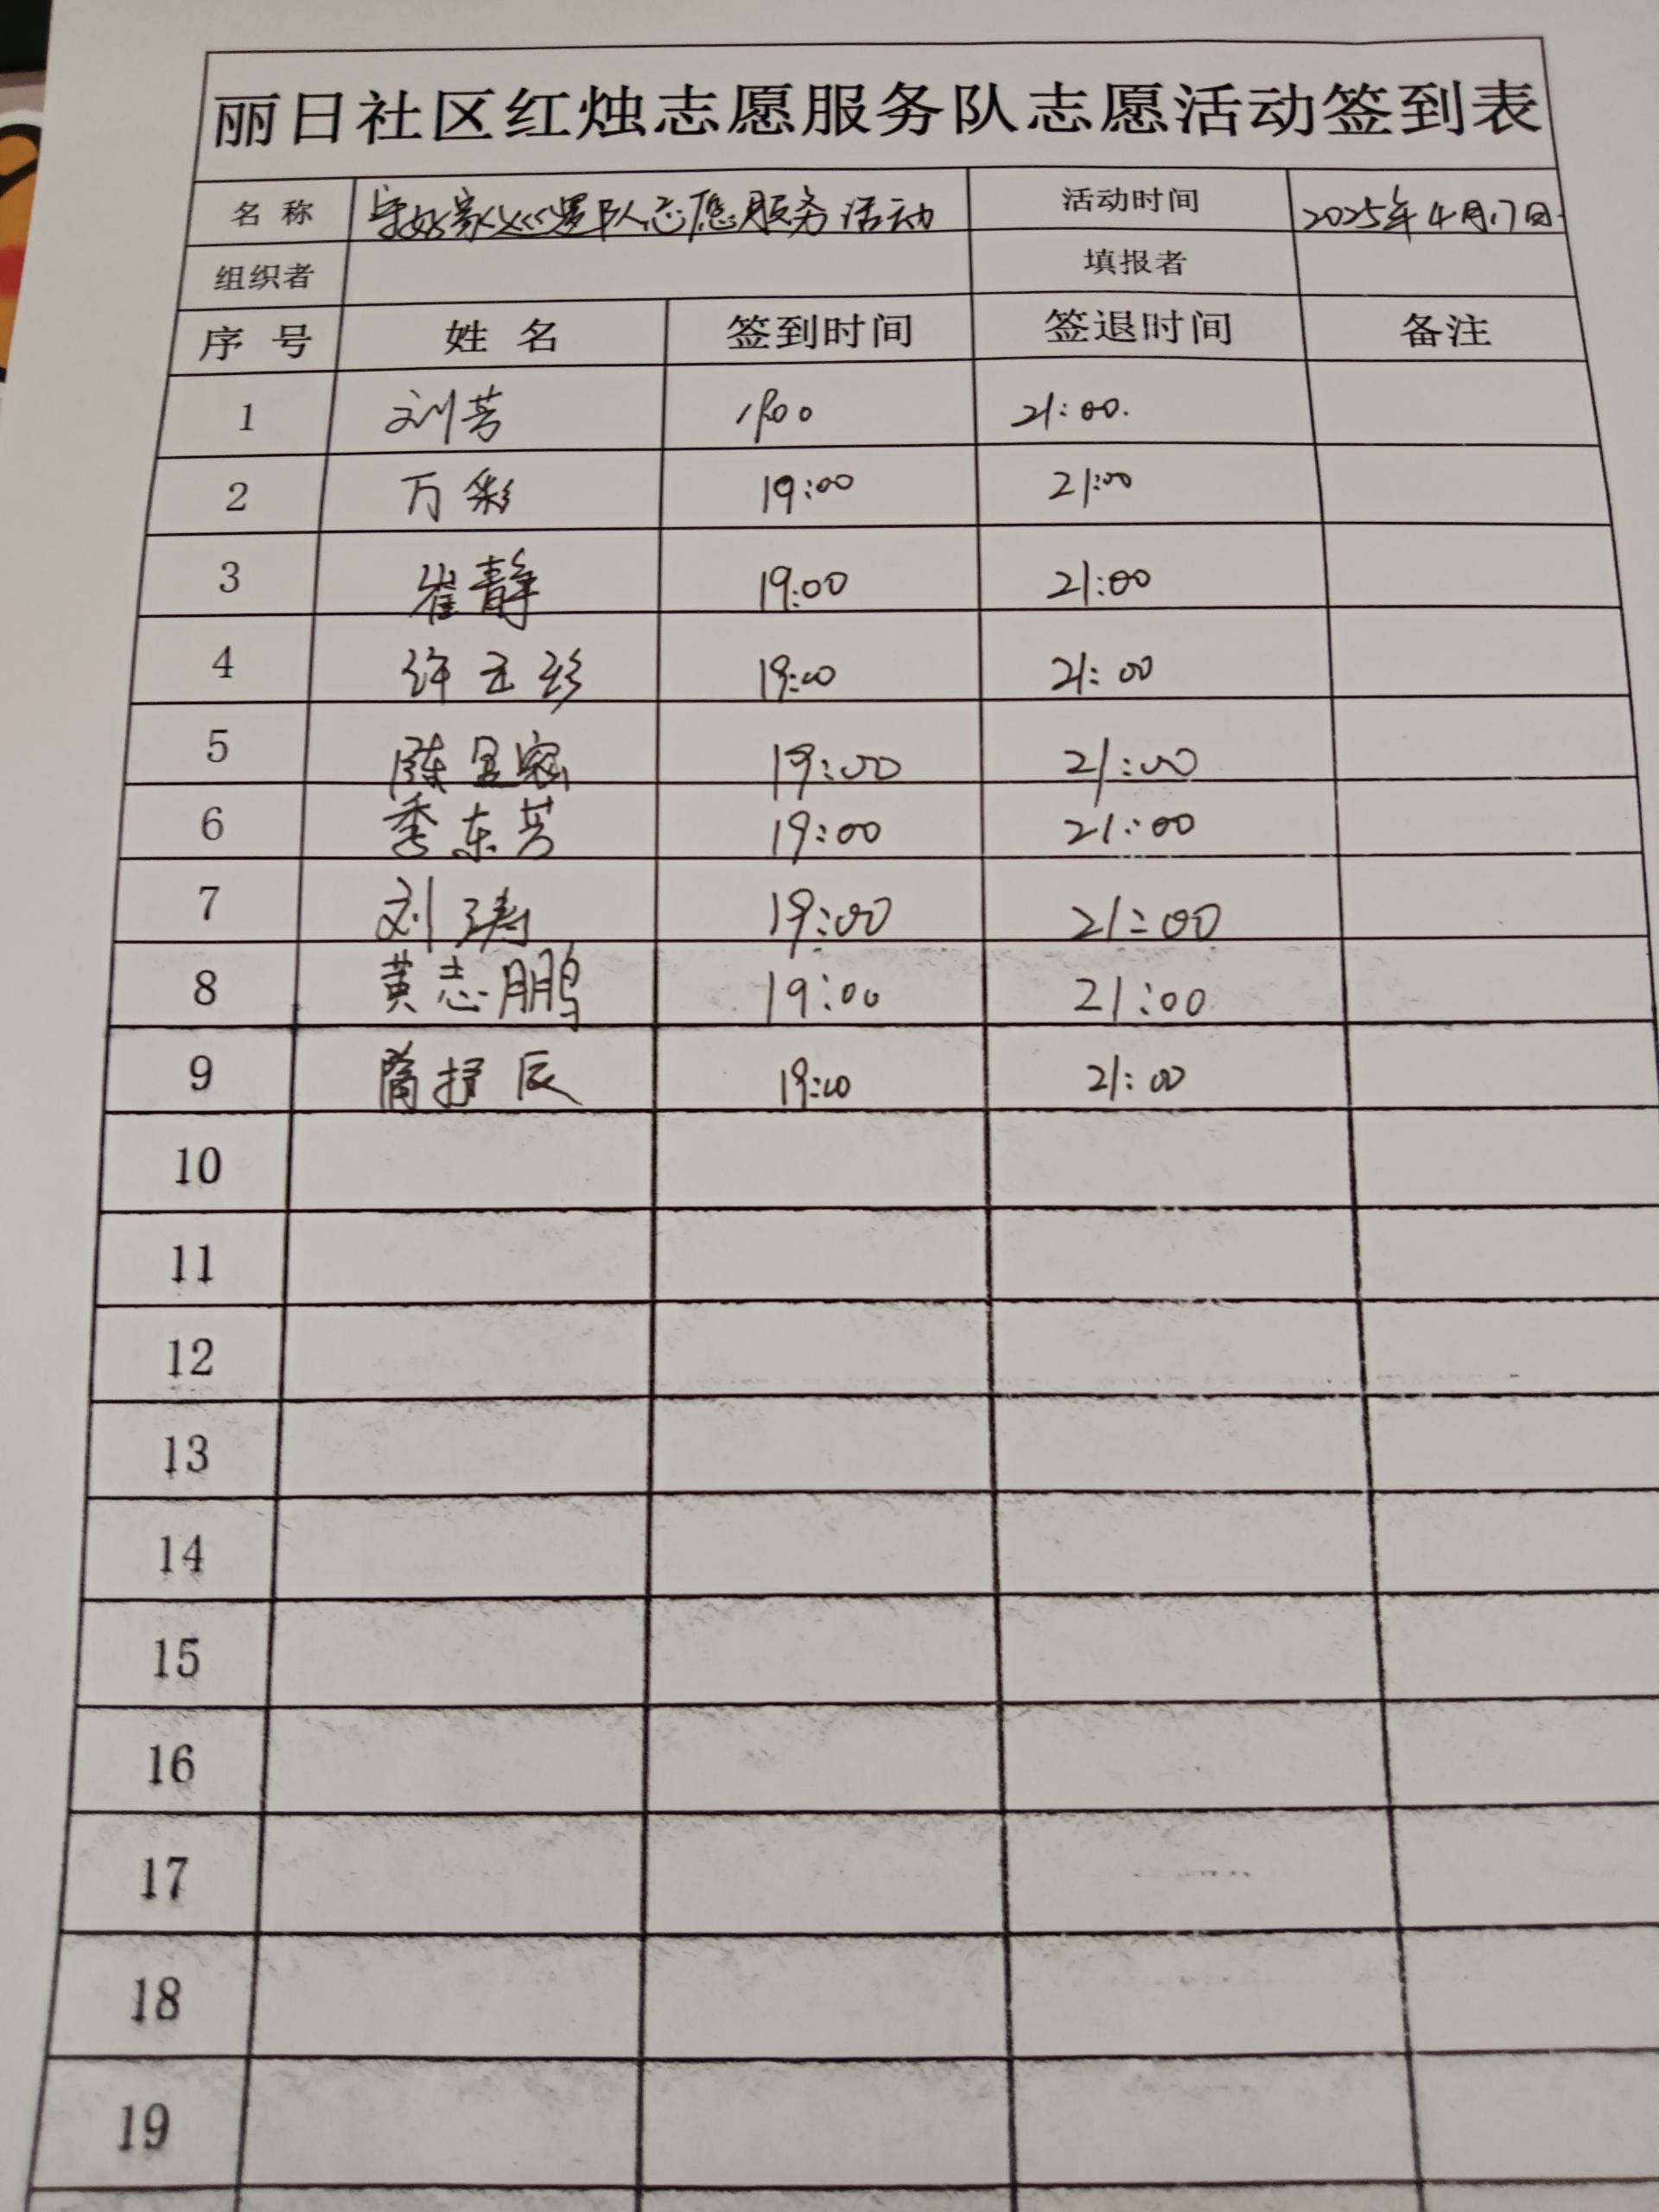 丽日社区红烛志愿服务队志愿活动签到表
名称 守好家巡逻队志愿服务活动 活动时间 2025年4月17日
组织者 填报者
序号 姓名 签到时间 签退时间 备注
1 刘芳 19:00 21:00
2 万彩 19:00 21:00
3 崔静 19:00 21:00
4 许玉珍 19:00 21:00
5 陈 19:00 21:00
6 季东芳 19:00 21:00
7 刘涛 19:00 21:00
8 黄志鹏 19:00 21:00
9 辰 19:00 21:00
10
11
12
13
14
15
16
17
18
19